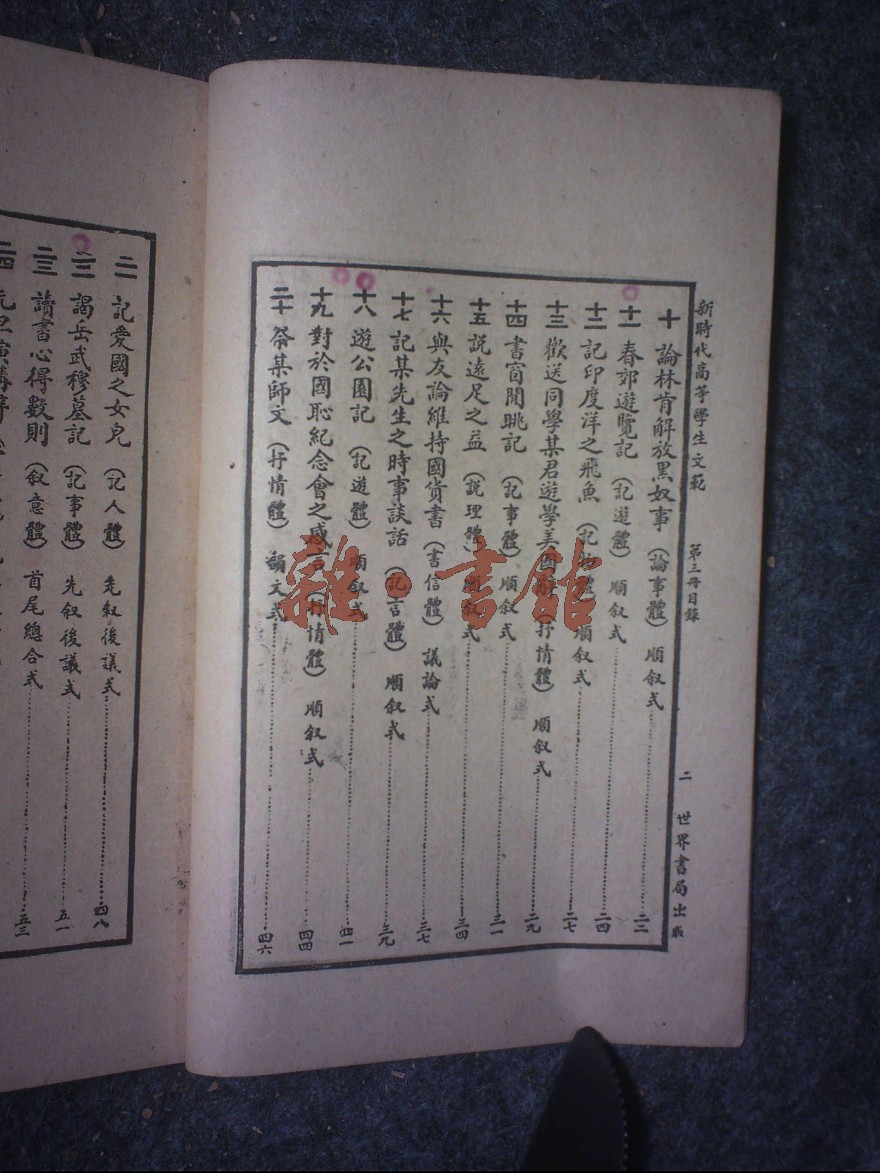 新時代高等學生文範 第三冊目錄 二 世界書局出版
十 論林肯解放黑奴事（論事體）順叙式 二二
十一 春郊遊覽記（記遊體）順叙式 二四
十二 記印度洋之飛魚（記物體）順叙式 二七
十三 歡送同學某君遊學美國（抒情體）順叙式 二九
十四 書窗閒眺記（記事體）順叙式 三一
十五 説遠足之益（説理體）順叙式 三四
十六 與友論維持國貨書（書信體）議論式 三七
十七 記某先生之時事談話（記言體）順叙式 三九
十八 遊公園記（記遊體）順叙式 四一
十九 對於國恥紀念會之感言（抒情體）順叙式 四四
二十 祭某師文（抒情體）韻文式 四六
二一 記愛國之女兒（記人體）先叙後議式 四八
二二 謁岳武穆墓記（記事體）先叙後議式 五一
二三 讀書心得數則（叙意體）首尾總合式 五三
二四
雜·書館